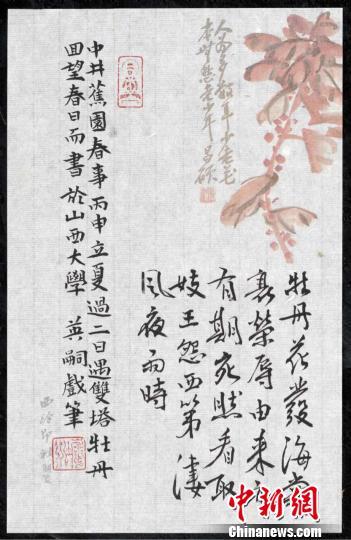 老少年 昌碩
牡丹花發海棠
裹榮辱由来
有期宛然看取
妓王怨西第淒
風夜雨時
中井蕉園春事丙申立夏過二日遇雙塔牡丹
回望春日而書於山西大學 英嗣戲筆
中新网
www.chinanews.com